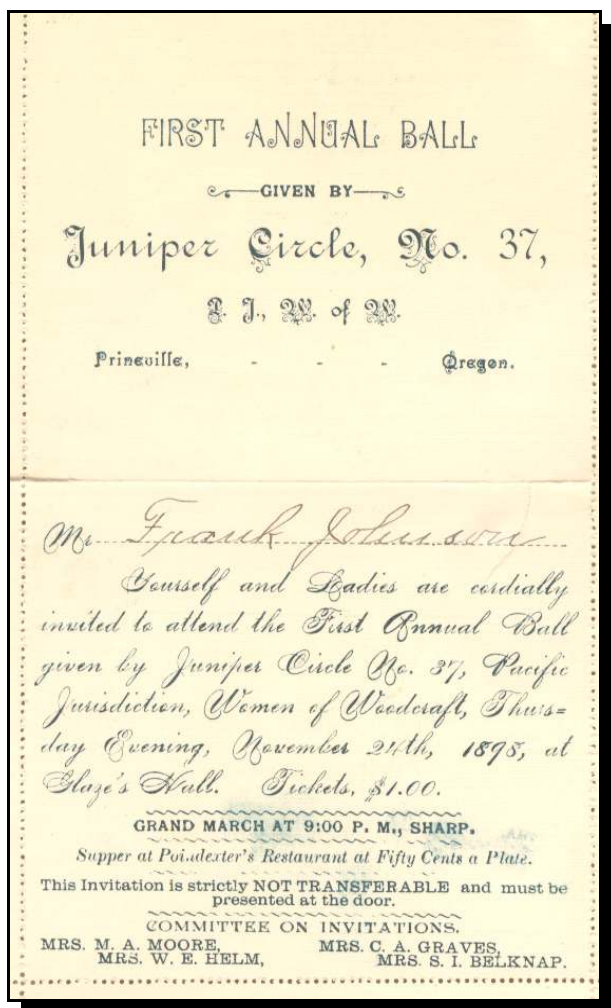 FIRST ANNUAL BALL
GIVEN BY
Juniper Circle, No. 37,
P. J., W. of W.
Prineville, - - - Oregon.
Mr. Frank Johnson
Yourself and Ladies are cordially
invited to attend the First Annual Ball
given by Juniper Circle No. 37, Pacific
Jurisdiction, Women of Woodcraft, Thurs=
day Evening, November 24th, 1898, at
Glaze's Hall. Tickets, $1.00.
GRAND MARCH AT 9:00 P. M., SHARP.
Supper at Poindexter's Restaurant at Fifty Cents a Plate.
This Invitation is strictly NOT TRANSFERABLE and must be
presented at the door.
COMMITTEE ON INVITATIONS.
MRS. M. A. MOORE, MRS. C. A. GRAVES,
MRS. W. E. HELM, MRS. S. I. BELKNAP.